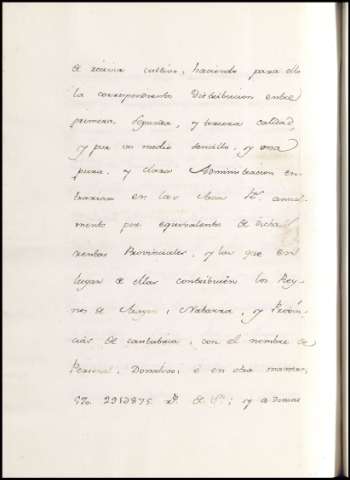 de recivir cultivo, haciendo para ello
la correspondiente Distribucion entre
primera, segunda, y tercera calidad,
y por un medio sencillo, y una
pura, y clara Administracion en-
trarian en las Arcas Rs. anual-
mente por equivalente de dichas
rentas Provinciales, y las que en
lugar de ellas contribuien los Rey-
nos de Aragon, Nabarra, y Provin-
cias de cantabria, con el nombre de
Personal, Donativo, ó en otra manera,
2913875 de